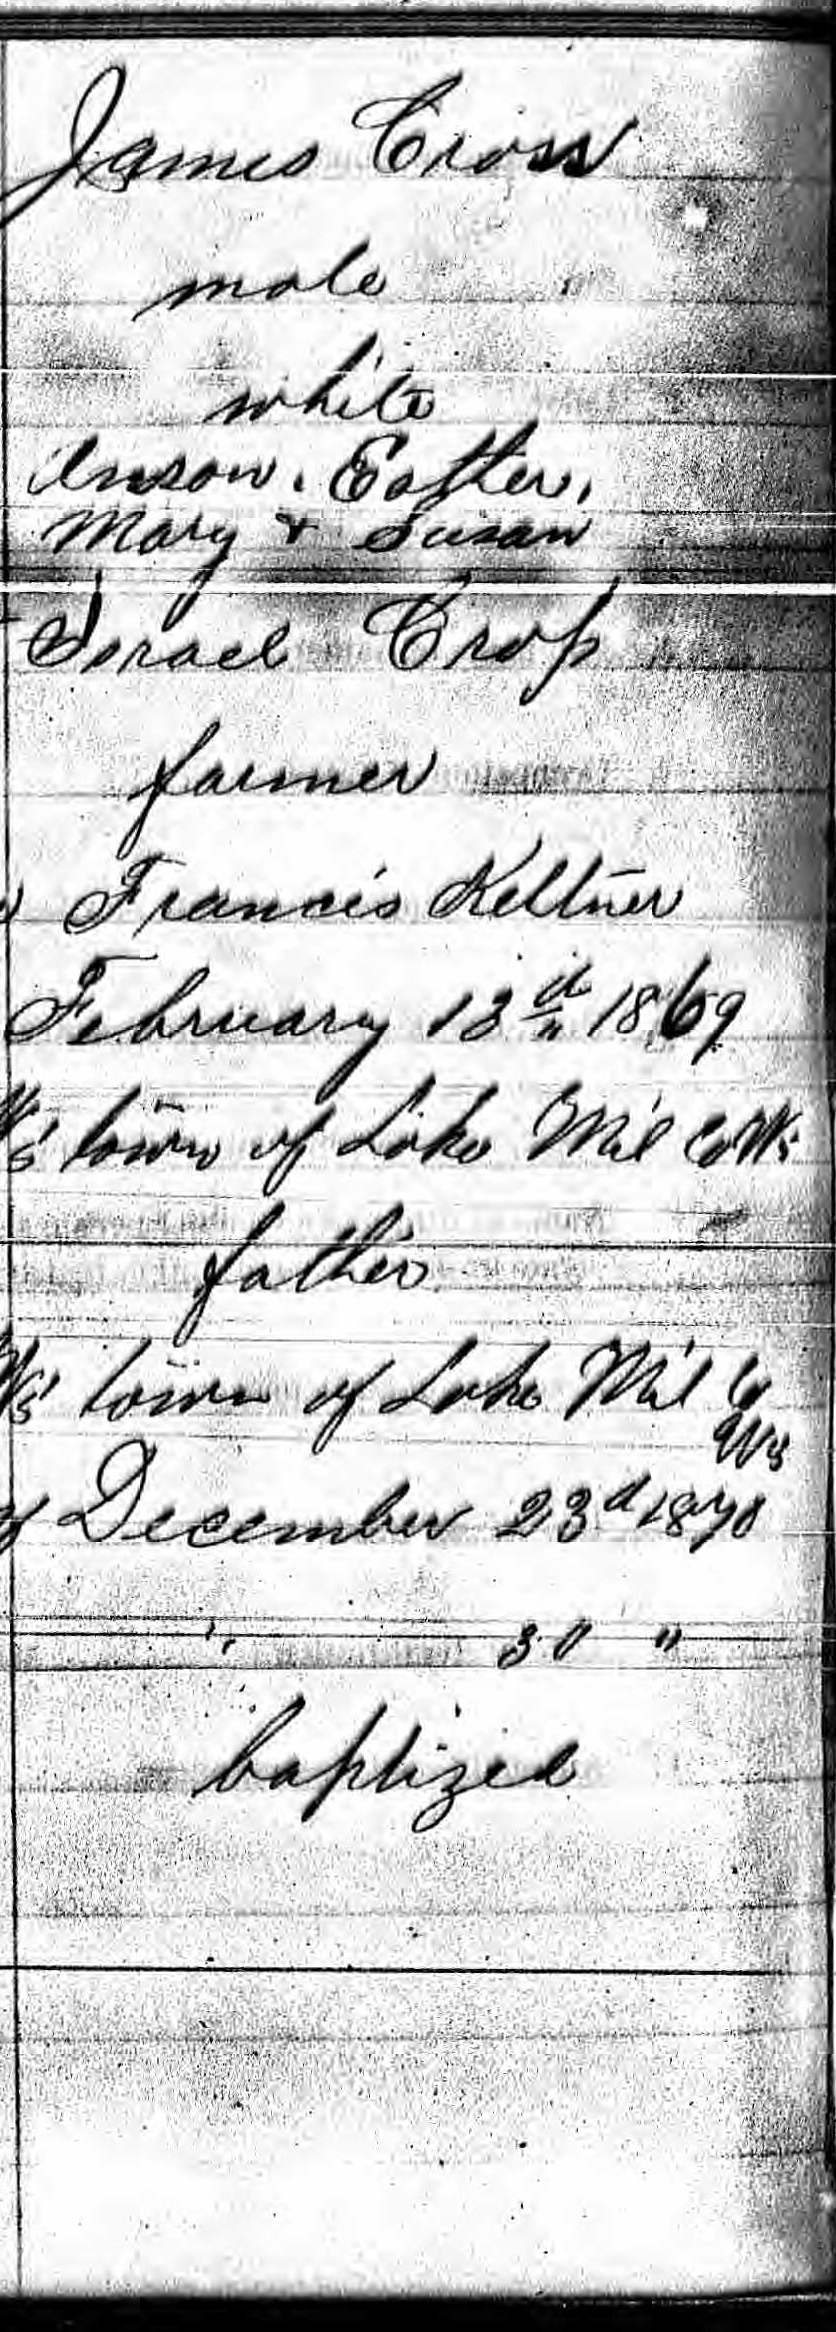 James Cross
male
white
Anson, Eather,
Mary & Susan
Israel Cross
farmer
Francis Keltner
February 13th 1869
Ws town of Lake Mil Co Ws
father
Ws town of Lake Mil Co
Ws
December 23d 1870
" 30 "
baptized